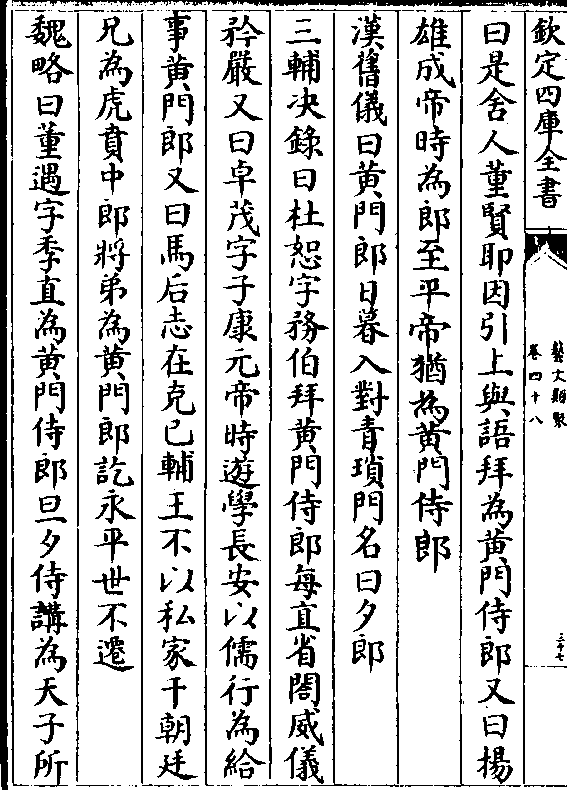 欽定四庫全書
藝文類聚
卷四十八
三十七
曰是舍人董賢耶因引上與語拜為黃門侍郎又曰楊
雄成帝時為郎至平帝猶為黃門侍郎
漢舊儀曰黃門郎日暮入對青瑣門名曰夕郎
三輔決錄曰杜恕字務伯拜黃門侍郎每直省閤威儀
矜嚴又曰卓茂字子康元帝時遊學長安以儒行為給
事黃門郎又曰馬后志在克已輔王不以私家干朝廷
兄為虎賁中郎將弟為黃門郎訖永平世不遷
魏略曰董遇字季直為黃門侍郎旦夕侍講為天子所